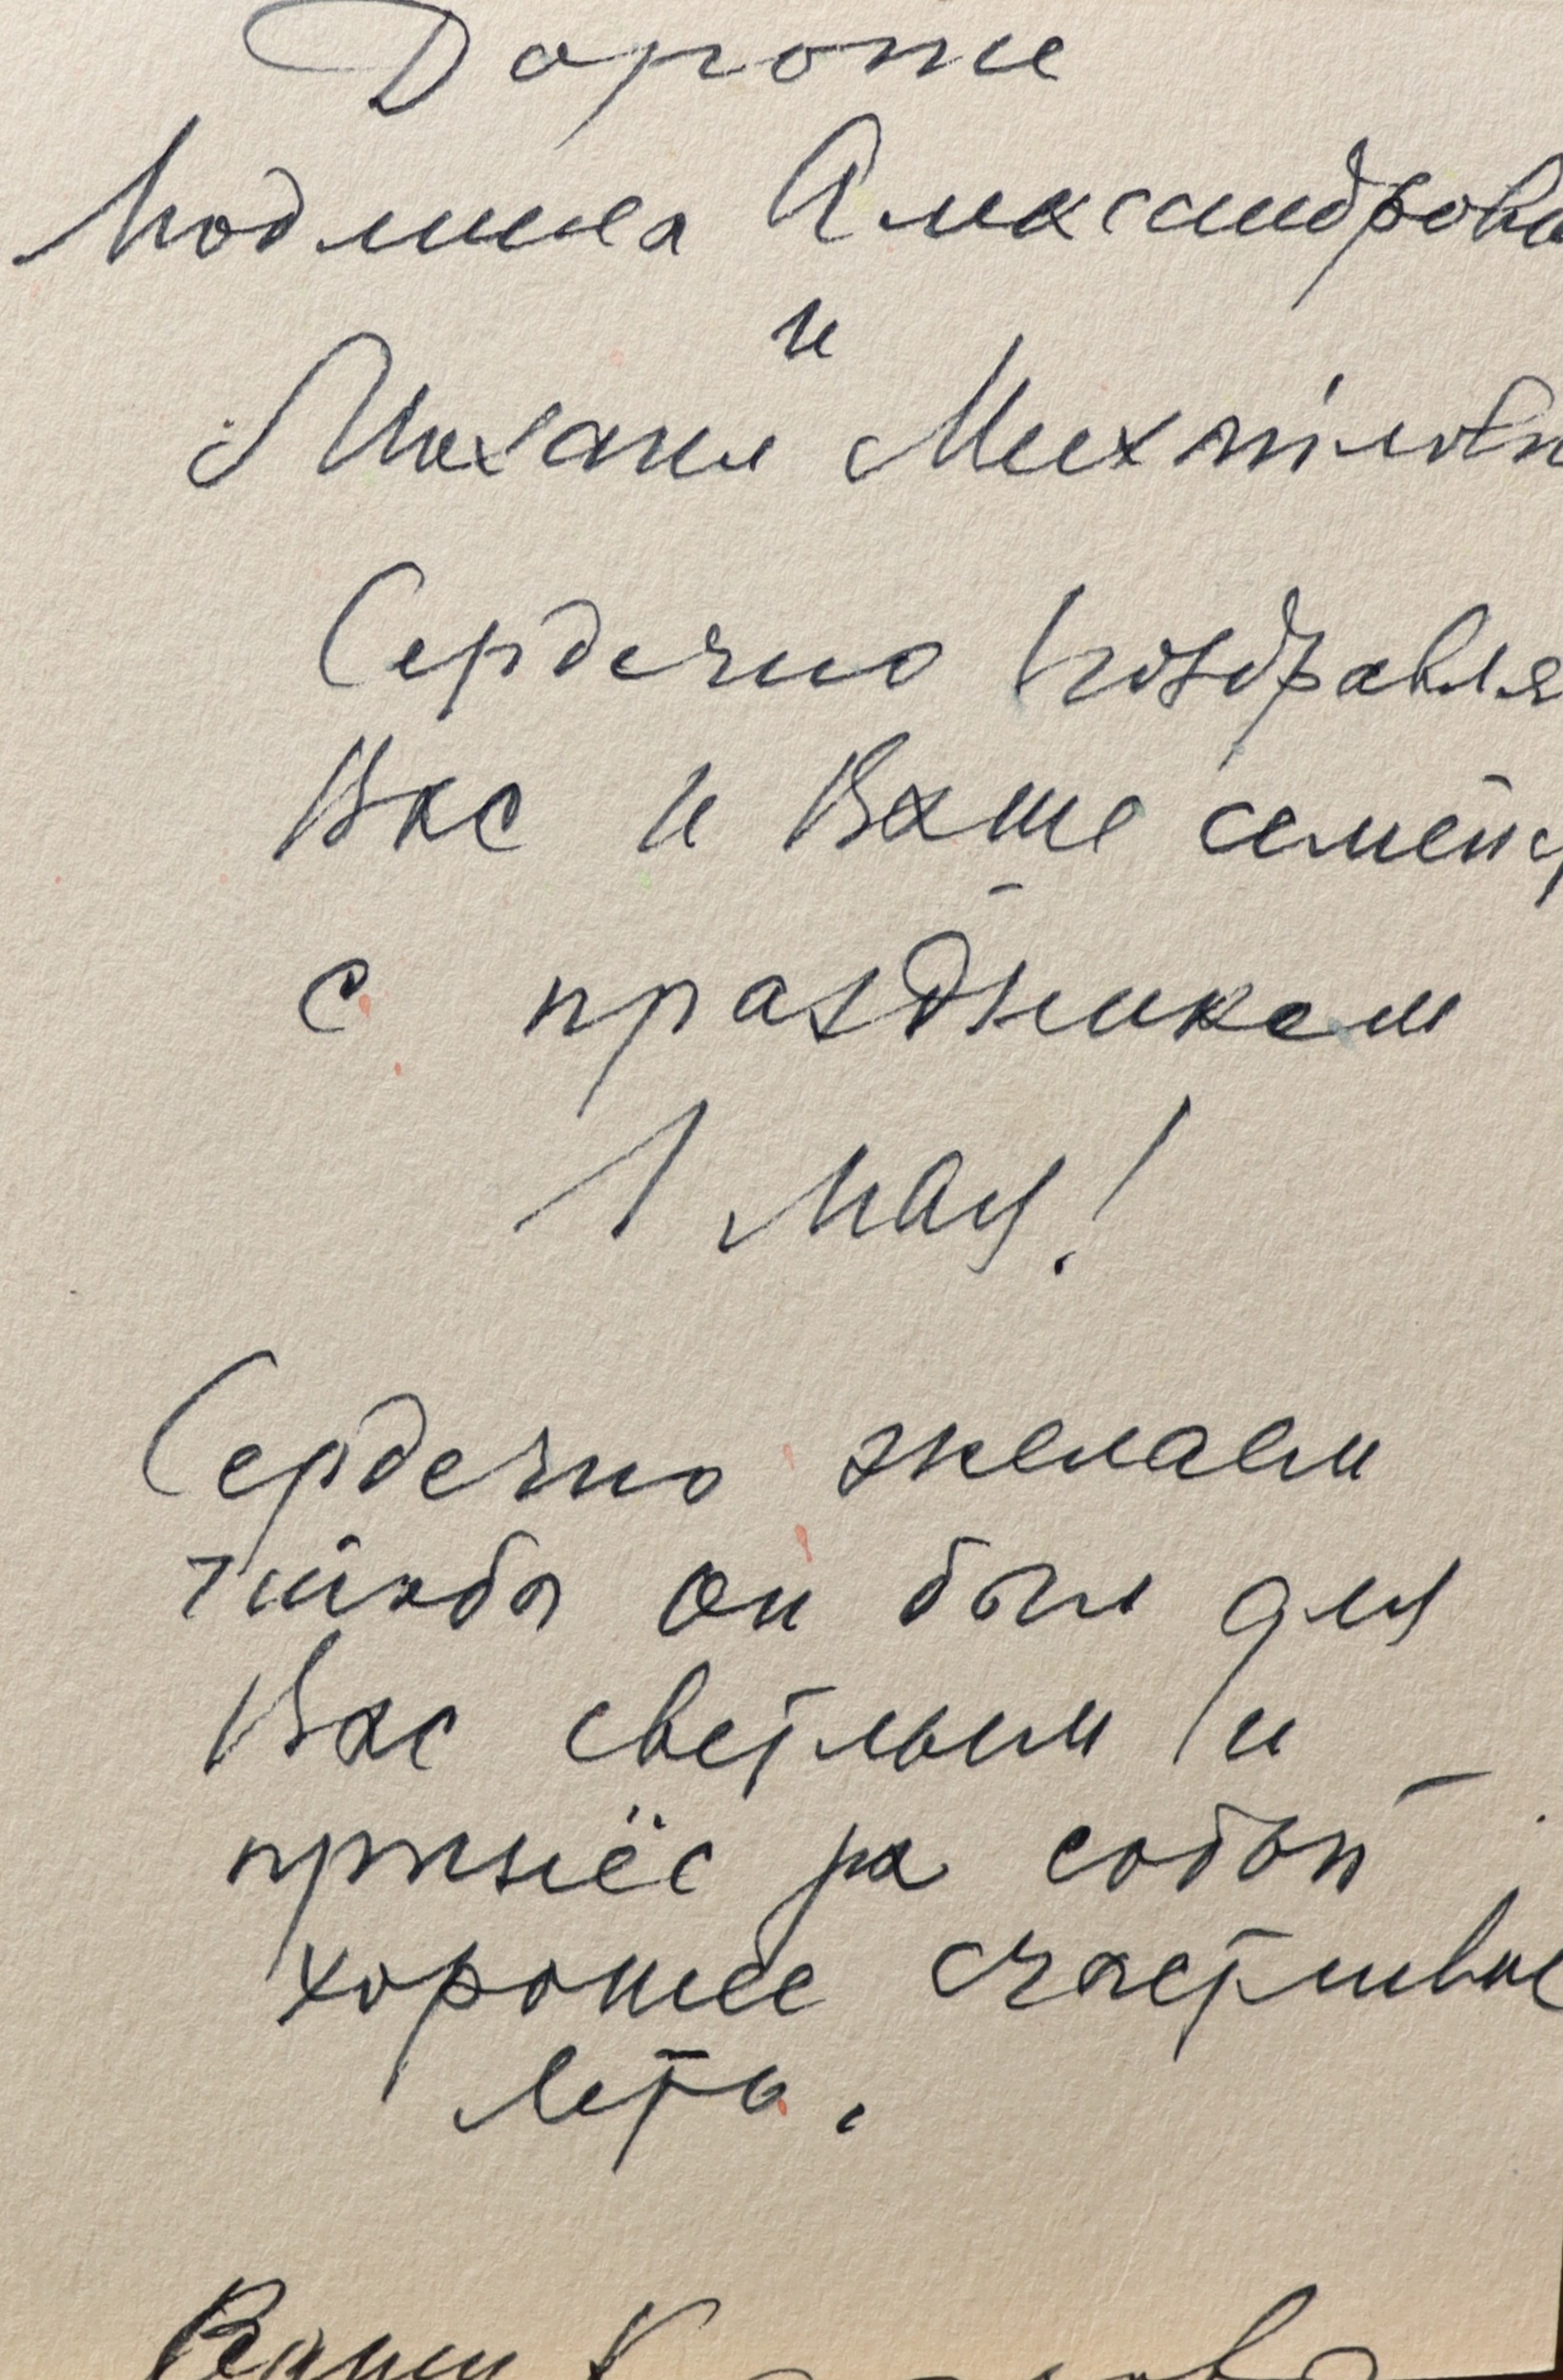 Дорогие
Людмила Александровна
и
Михаил Михайлович
Сердечно поздравля
Вас и Ваше семейс
с праздником
1 мая!
Сердечно желаем
чтобы он был для
Вас светлым и
принёс за собой
хорошее счастливое
лето.
Ваши